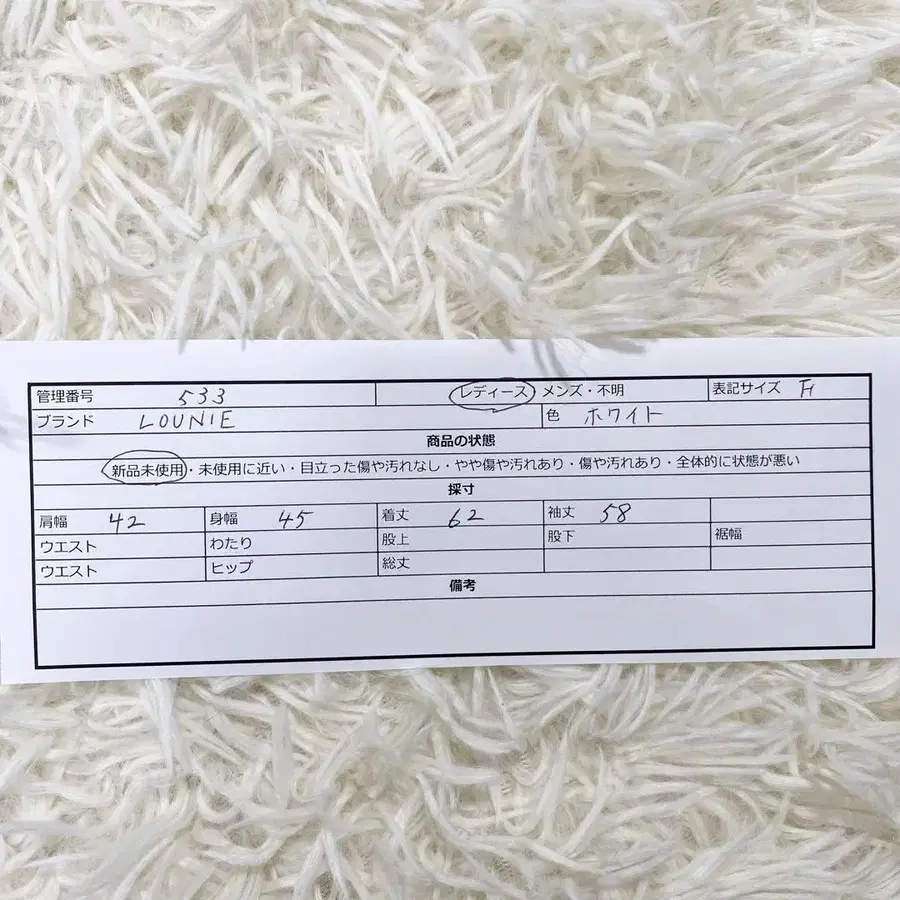 管理番号 533 レディース メンズ・不明 表記サイズ
ブランド LOUNIE 色 ホワイト
商品の状態
新品未使用・未使用に近い・目立った傷や汚れなし・やや傷や汚れあり・傷や汚れあり・全体的に状態が悪い
採寸
肩幅 42 身幅 45 着丈 62 袖丈 58
ウエスト わたり 股上 股下 裾幅
ウエスト ヒップ 総丈
備考